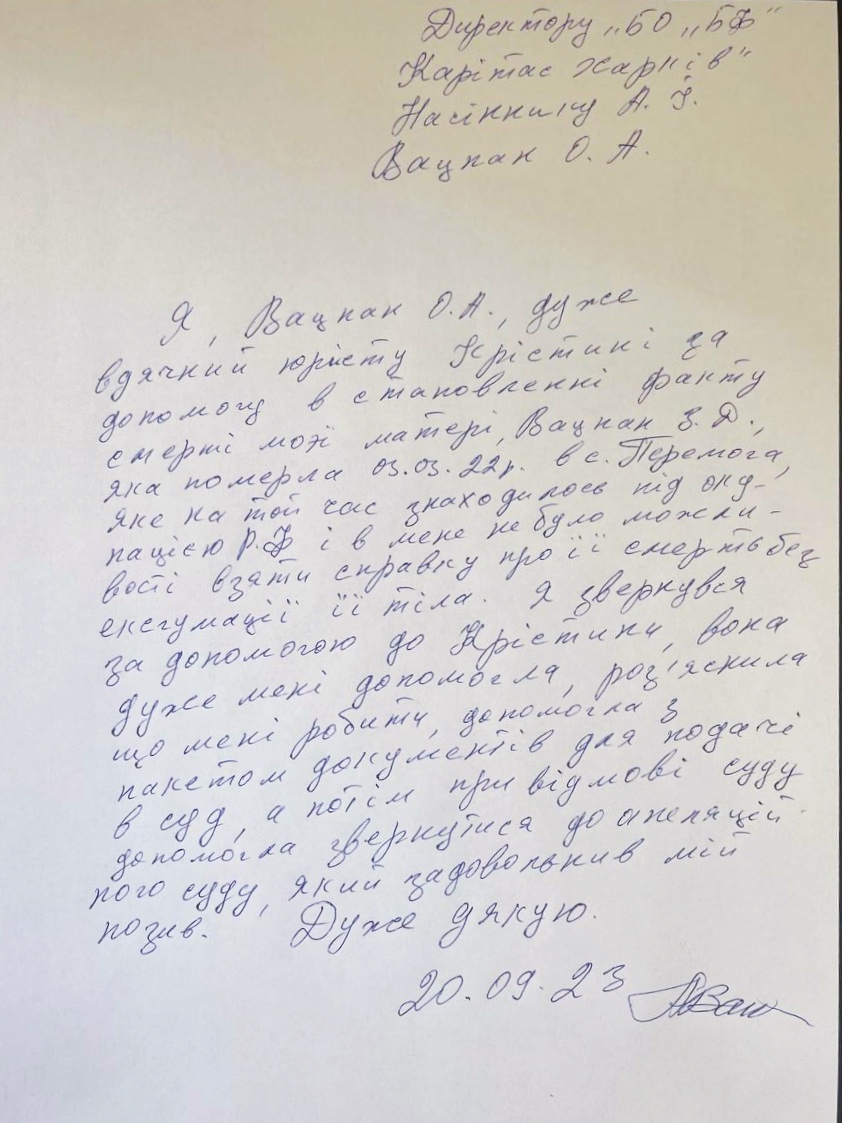 Директору „БО „БФ"
Карітас Харків"
Насіннику А. І.
Вацпан О. А.
Я, Вацпан О.А., дуже
вдячний юристу Крістині за
допомогу в становленні факту
смерті моєї матері, Вацпан З. Д.,
яка померла 03.03.22р. в с. Перемога,
яке на той час знаходилось під оку-
пацією Р.Ф і в мене не було можли-
вості взяти справку про її смерть без
ексгумації її тіла. Я звернувся
за допомогою до Крістини, вона
дуже мені допомогла, роз'яснила
що мені робити, допомогла з
пакетом документів для подачі
в суд, а потім при відмові суду
допомогла звернутися до апеляцій-
ного суду, який задовольнив мій
позив. Дуже дякую.
20.09.23